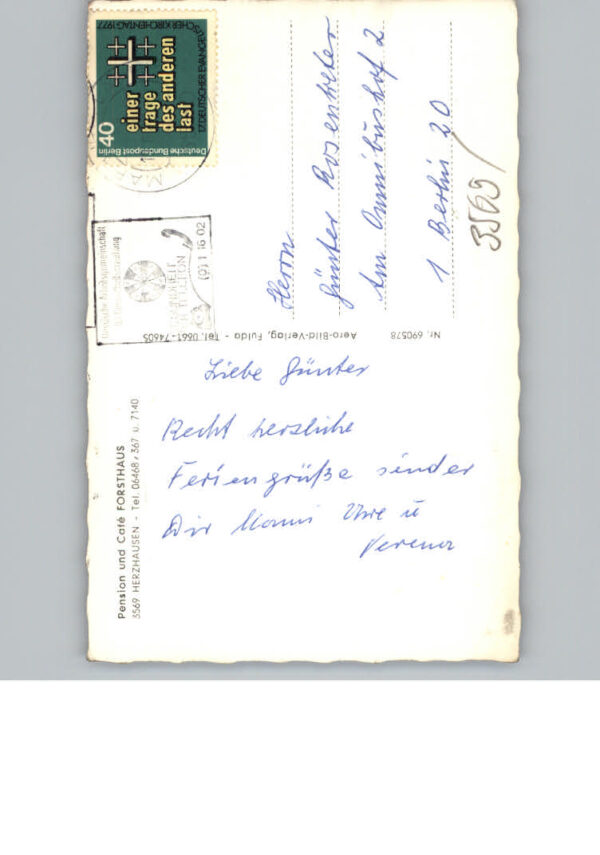 Pension und Café FORSTHAUS
3569 HERZHAUSEN - Tel. 06468 / 367 u. 7140
Liebe Günter
Recht herzliche
Feriengrüße senden
Dir Mami Uwe u
Verena
Nr. 690578
Aero-Bild-Verlag, Fulda - Tel. 0661-74605
17. DEUTSCHER EVANGELISCHER KIRCHENTAG 1977
einer
trage
des anderen
last
40
Deutsche Bundespost Berlin
(0911) 16 02
Herrn
Günter Rosentreter
Am Omnibushof 2
1 Berlin 20
3569